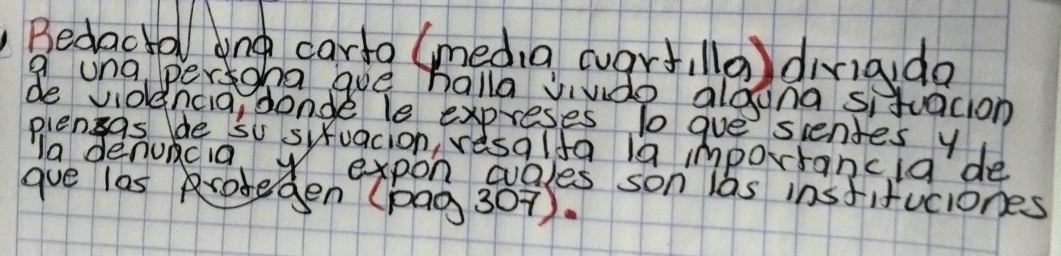 Redacta una carta (media cuartilla) dirigida
a una persona que halla vivido alguna situacion
de violencia, donde le expreses lo que sientes y
piensas de su situacion, resalta la importancia de
la denuncia y expon cuales son las instituciones
que las protegen (pag 307).